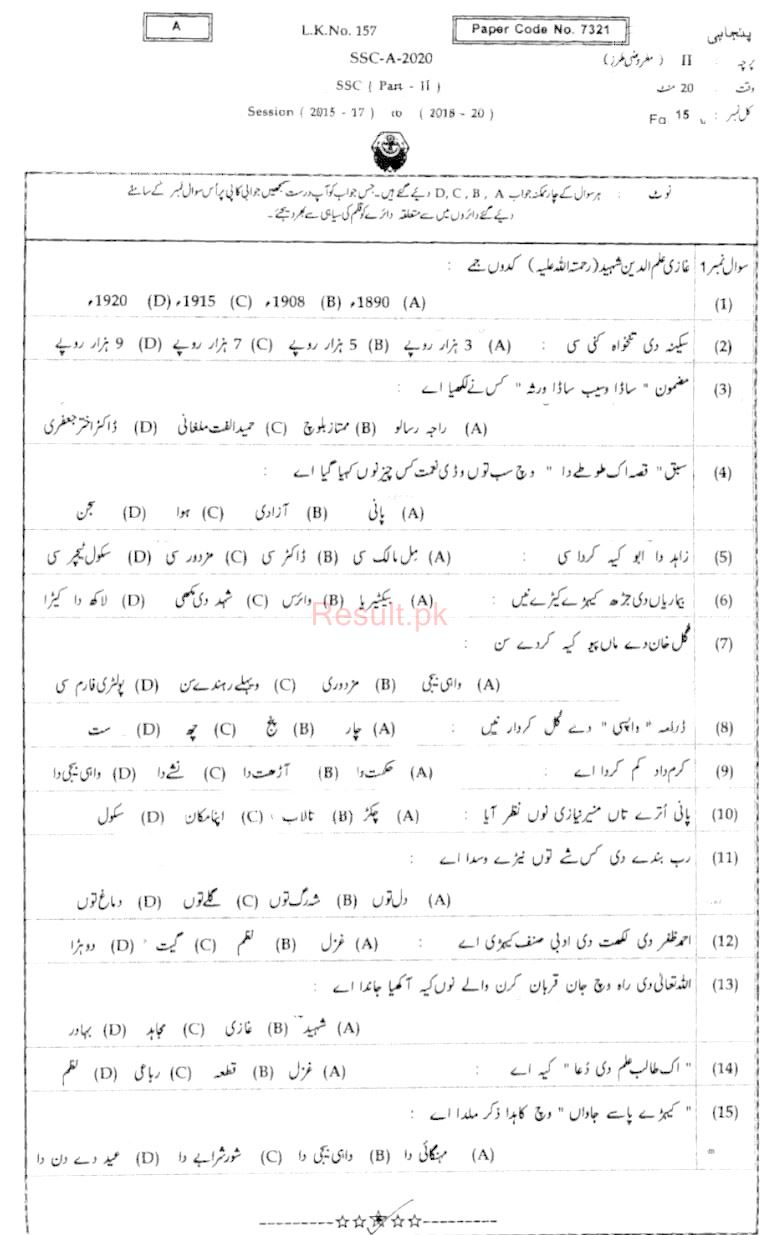 A
L.K.No. 157
Paper Code No. 7321
پنجابی
SSC-A-2020
پرچہ : II ( معروضی طرز )
SSC ( Part - II )
وقت : 20 منٹ
Session ( 2015 - 17 ) to ( 2018 - 20 )
کل نمبر : 15
نوٹ : ہر سوال کے چار ممکنہ جواب D, C, B, A دیے گئے ہیں۔ جس جواب کو آپ درست سمجھیں جوابی کاپی پر اُس سوال نمبر کے سامنے
دیے گئے دائروں میں سے متعلقہ دائرے کو قلم کی سیاہی سے بھر دیجئے۔
سوال نمبر 1 غازی علم الدین شہید (رحمتہ اللہ علیہ) کدوں جمے :
(1) (A) 1890ء (B) 1908ء (C) 1915ء (D) 1920ء
(2) سکینہ دی تنخواہ کنی سی : (A) 3 ہزار روپے (B) 5 ہزار روپے (C) 7 ہزار روپے (D) 9 ہزار روپے
(3) مضمون " ساڈا وسیب ساڈا ورثہ " کس نے لکھیا اے :
(A) راجہ رسالو (B) ممتاز بلوچ (C) حمید الفت ملغانی (D) ڈاکٹر اختر جعفری
(4) سبق " قصہ اک طوطے دا " وچ سب توں وڈی نعمت کس چیز نوں کہیا گیا اے :
(A) پانی (B) آزادی (C) ہوا (D) سجن
(5) زاہد دا ابو کیہ کردا سی : (A) مِل مالک سی (B) ڈاکٹر سی (C) مزدور سی (D) سکول ٹیچر سی
(6) بیماریاں دی جڑھ کیہڑے کیڑے نیں : (A) بیکٹیریا (B) وائرس (C) شہد دی مکھی (D) لاکھ دا کیڑا
Result.pk
(7) گل خان دے ماں پیو کیہ کردے سن
(A) واہی بیجی (B) مزدوری (C) ویہلے رہندے سن (D) پولٹری فارم سی
(8) ڈرامہ " واپسی " دے کل کردار نیں : (A) چار (B) پنج (C) چھ (D) ست
(9) کرم داد کم کردا اے : (A) حکمت دا (B) آڑھت دا (C) نشے دا (D) واہی بیجی دا
(10) پانی اُترے تاں منیر نیازی نوں نظر آیا : (A) چکڑ (B) تالاب (C) اپنا مکان (D) سکول
(11) رب بندے دی کس شے توں نیڑے وسدا اے :
(A) دل توں (B) شہ رگ توں (C) گلے توں (D) دماغ توں
(12) احمد ظفر دی لکھت دی ادبی صنف کیہڑی اے : (A) غزل (B) نظم (C) گیت (D) دوہڑا
(13) اللہ تعالیٰ دی راہ وچ جان قربان کرن والے نوں کیہ آکھیا جاندا اے :
(A) شہید (B) غازی (C) مجاہد (D) بہادر
(14) " اک طالب علم دی دُعا " کیہ اے : (A) غزل (B) قطعہ (C) رباعی (D) نظم
(15) " کیہڑے پاسے جاواں " وچ کاہدا ذکر ملدا اے :
(A) مہنگائی دا (B) واہی بیجی دا (C) شور شرابے دا (D) عید دے دن دا